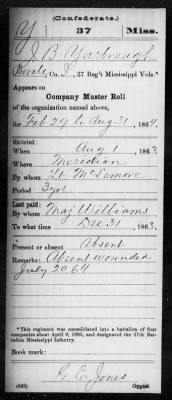 (Confederate.)
Y 37 Miss.
J B Yarbrough
Private, Co. I, 37 Reg't Mississippi Vols.*
Appears on
Company Muster Roll
of the organization named above,
for Feb 29 to Aug 31, 1864.
Enlisted:
When Aug 1, 1863
Where Meridian
By whom Lt McLemore
Period 3 yrs
Last paid:
By whom Maj Williams
To what time Dec 31, 1863.
Present or absent Absent
Remarks: Absent wounded
July 20, 64
*This regiment was consolidated into a battalion of four
companies about April 9, 1865, and designated the 37th Bat-
talion Mississippi Infantry.
Book mark:
G. E. Jones
(642) Copyist.